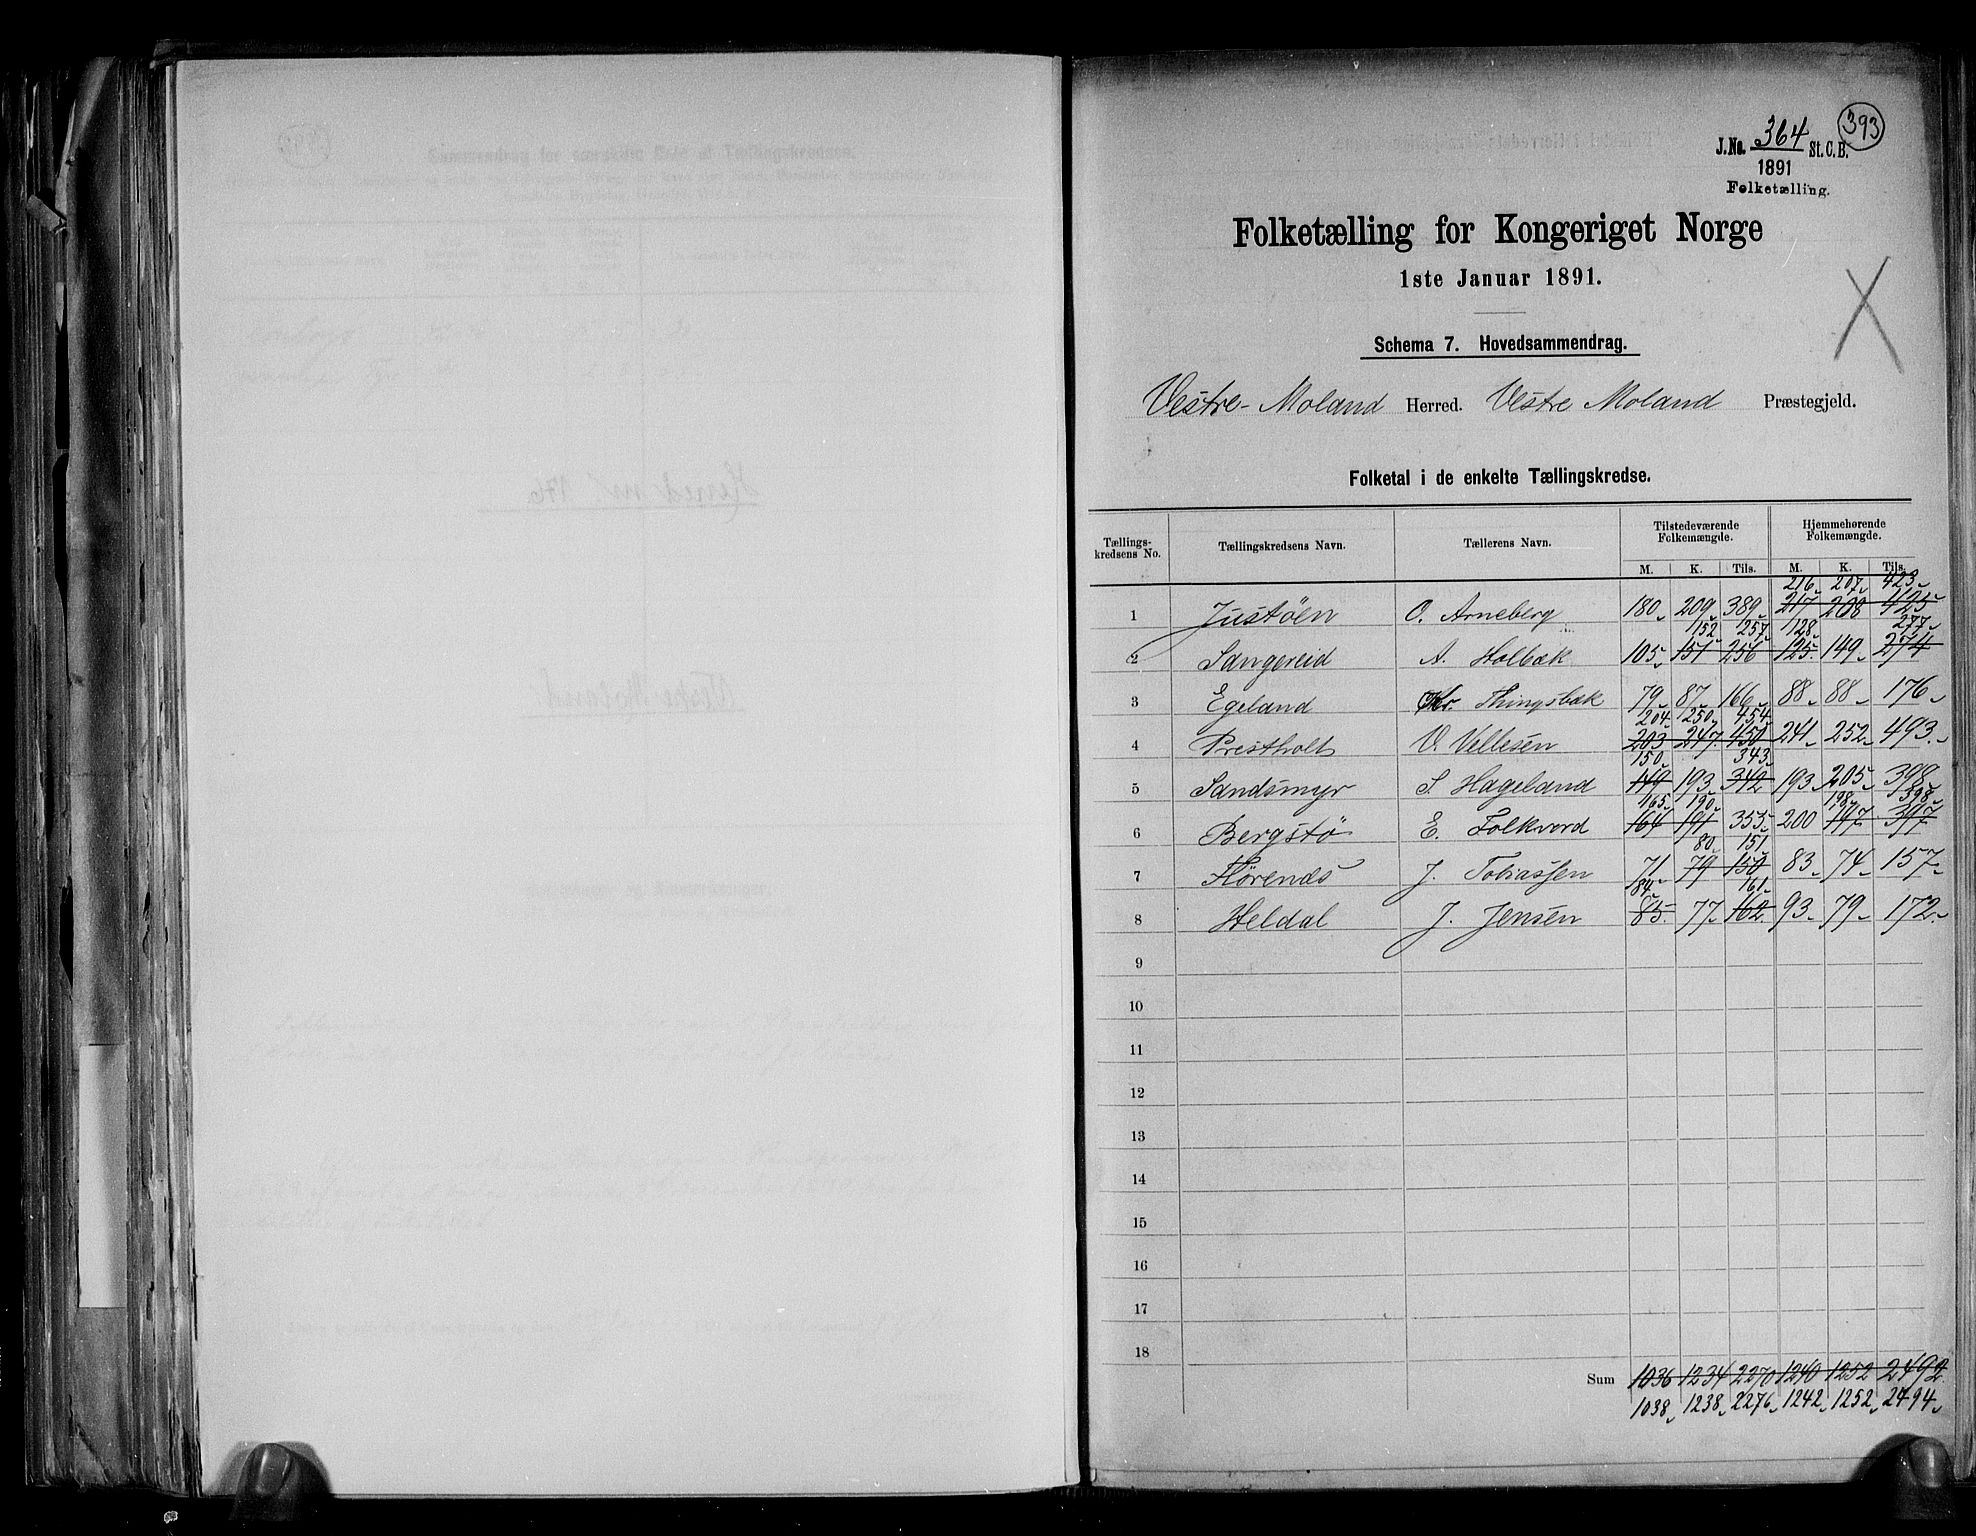 393
J.No. 364 St. C. B.
1891
Folketælling.
Folketælling for Kongeriget Norge
1ste Januar 1891.
Schema 7. Hovedsammendrag.
Vestre-Moland Herred. Vestre Moland Præstegjeld.
Folketal i de enkelte Tællingskredse.
Tællings-kredsens No. Tællingskredsens Navn. Tællerens Navn. Tilstedeværende Folkemængde. Hjemmehørende Folkemængde.
M. K. Tils. M. K. Tils.
216 207 423
1 Justöen O. Arneberg 180 209 389 217 208 425
152 257 128 277
2 Sangereid A. Holbæk 105 151 256 125 149 274
3 Egeland Kr. Thingsbæk 79 87 166 88 88 176
204 250 454
4 Prestholt V. Vellesen 203 247 450 241 252 493
150 343
5 Sandsmyr S. Hageland 149 193 342 193 205 398
165 190 198 398
6 Bergstö E. Folkvord 164 191 355 200 197 397
80 151
7 Hörenæs J. Tobiassen 71 79 150 83 74 157
84 161
8 Heldal J. Jensen 85 77 162 93 79 172
9
10
11
12
13
14
15
16
17
18
Sum 1036 1234 2270 1240 1252 2492
1038 1238 2276 1242 1252 2494